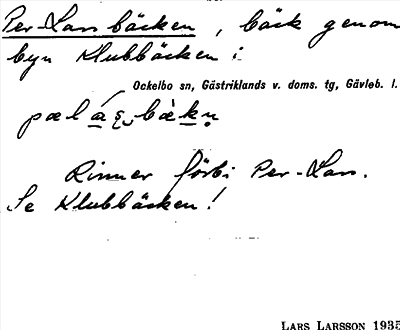 Per-Lars bäcken, bäck genom
byn Klubbäcken i
Ockelbo sn, Gästriklands v. doms. tg, Gävleb. l.
Rinner förbi Per-Lars.
Se Klubbäcken!
LARS LARSSON 1935